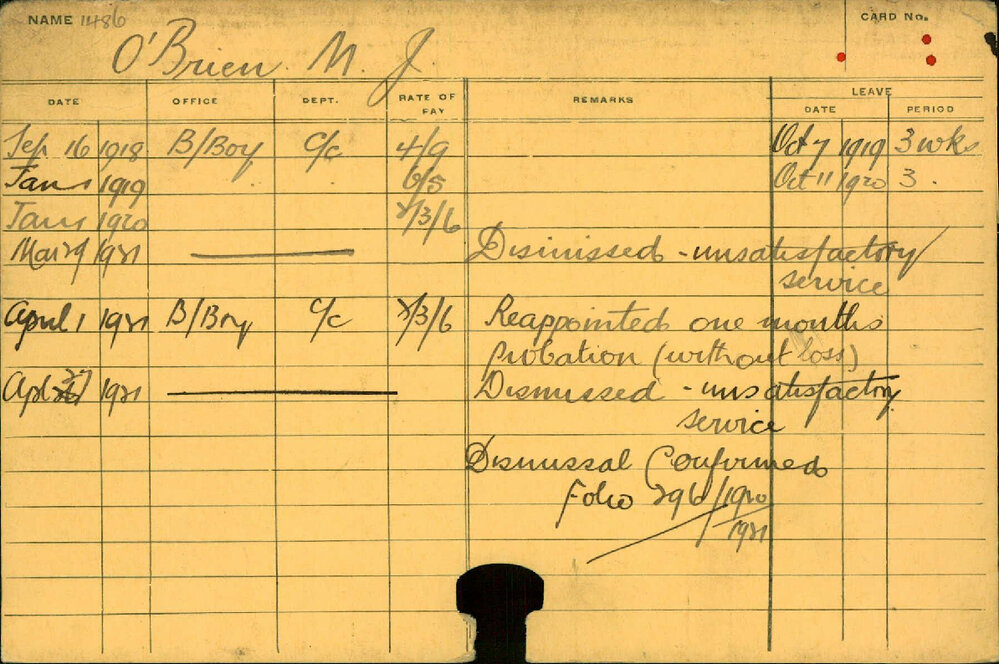 NAME 11486 CARD No.
O'Brien. M. J
DATE OFFICE DEPT. RATE OF PAY REMARKS LEAVE
DATE PERIOD
Sep 16 1918 B/Boy C/c 4/9 Oct 7 1919 3 wks
Jan 1 1919 6/5 Oct 11 1920 3.
Jan 1 1920 /3/6
Mar 29 1921 Dismissed - unsatisfactory
service
April 1 1921 B/Boy C/c /3/6 Reappointed one months
Probation (without loss)
Apl 27 1921 Dismissed - unsatisfactory
service
Dismissal Confirmed
Folio 296/1920
1921